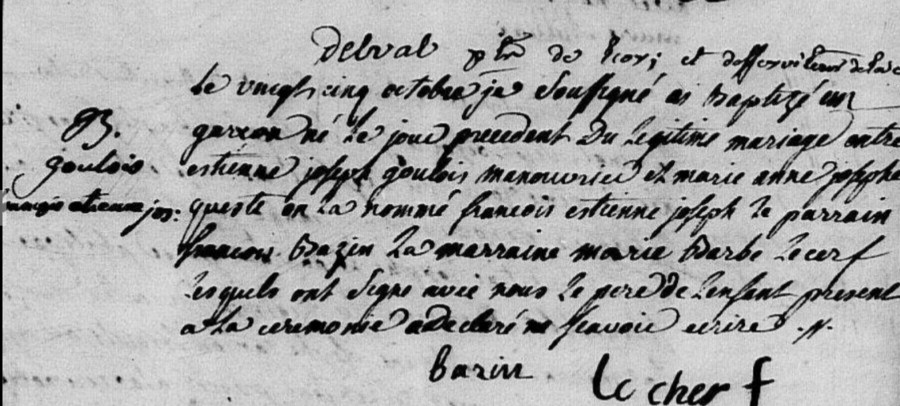 delval ptre de et desserviteur de la
Le vingt cinq octobre je soussigné ai baptizé un
B.
garcon né le jour precedent du legitime mariage entre
goulois
estienne joseph goulois manouvrier et marie anne josephe
francois etienne jos:
queste on la nommé francois estienne joseph le parrain
francois Bazin la marraine marie barbe lecerf
lesquels ont signe avec nous le pere de lenfant present
a la ceremonie a declaré ne scavoir ecrire
bazin Le cherf